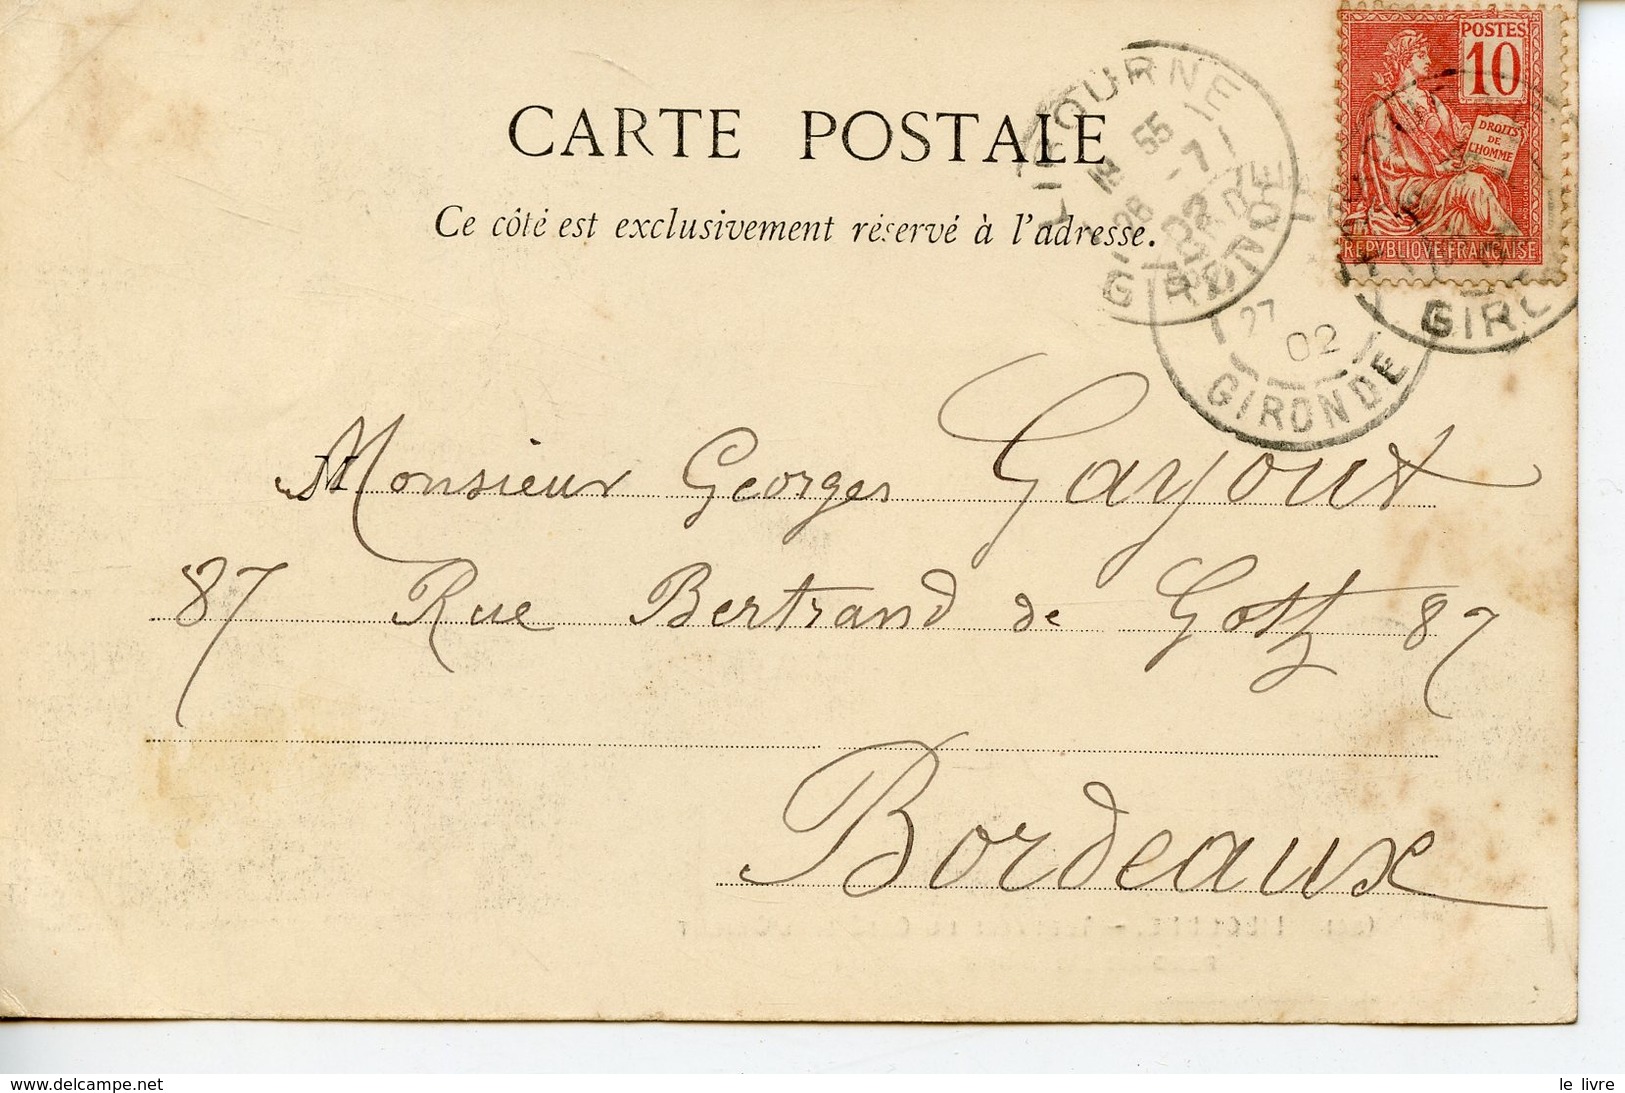 POSTES
10
DROITS
DE
L'HOMME
REPVBLIQVE FRANÇAISE
CARTE POSTALE
Ce côté est exclusivement réservé à l'adresse.
LIBOURNE
55
26 -7
02
GIRONDE
27
02
GIRONDE
GIRO
Monsieur Georges Gayout
87 Rue Bertrand de Gotz 87
Bordeaux
le livre